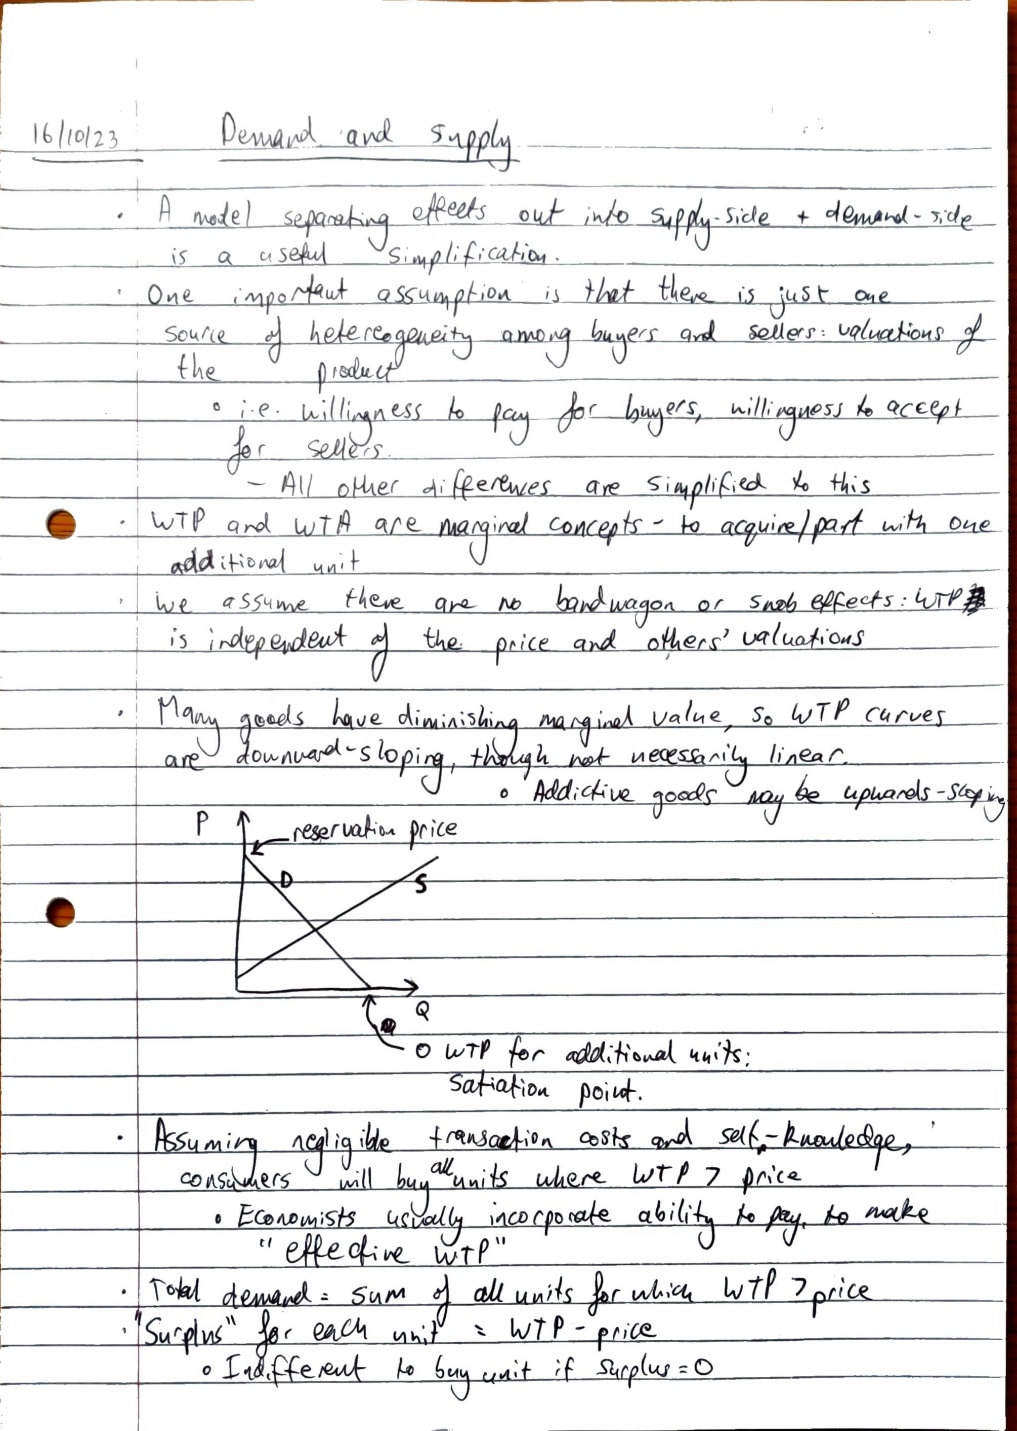 16/10/23 Demand and supply
· A model separating effects out into supply-side + demand-side
is a useful simplification.
· One important assumption is that there is just one
source of hetereogeneity among buyers and sellers: valuations of
the product
∘ i.e. willingness to pay for buyers, willingness to accept
for sellers.
– All other differences are simplified to this
· WTP and WTA are marginal concepts – to acquire/part with one
additional unit
· We assume there are no bandwagon or snob effects: WTP
is independent of the price and others' valuations
· Many goods have diminishing marginal value, so WTP curves
are downward-sloping, though not necessarily linear.
∘ Addictive goods may be upwards-sloping
P
reservation price
D
S
Q
0 WTP for additional units:
Satiation point.
· Assuming negligible transaction costs and self-knowledge,
consumers will buy all units where WTP > price
∘ Economists usually incorporate ability to pay, to make
"effective WTP"
· Total demand = sum of all units for which WTP > price
· "Surplus" for each unit = WTP - price
∘ Indifferent to buy unit if surplus = 0